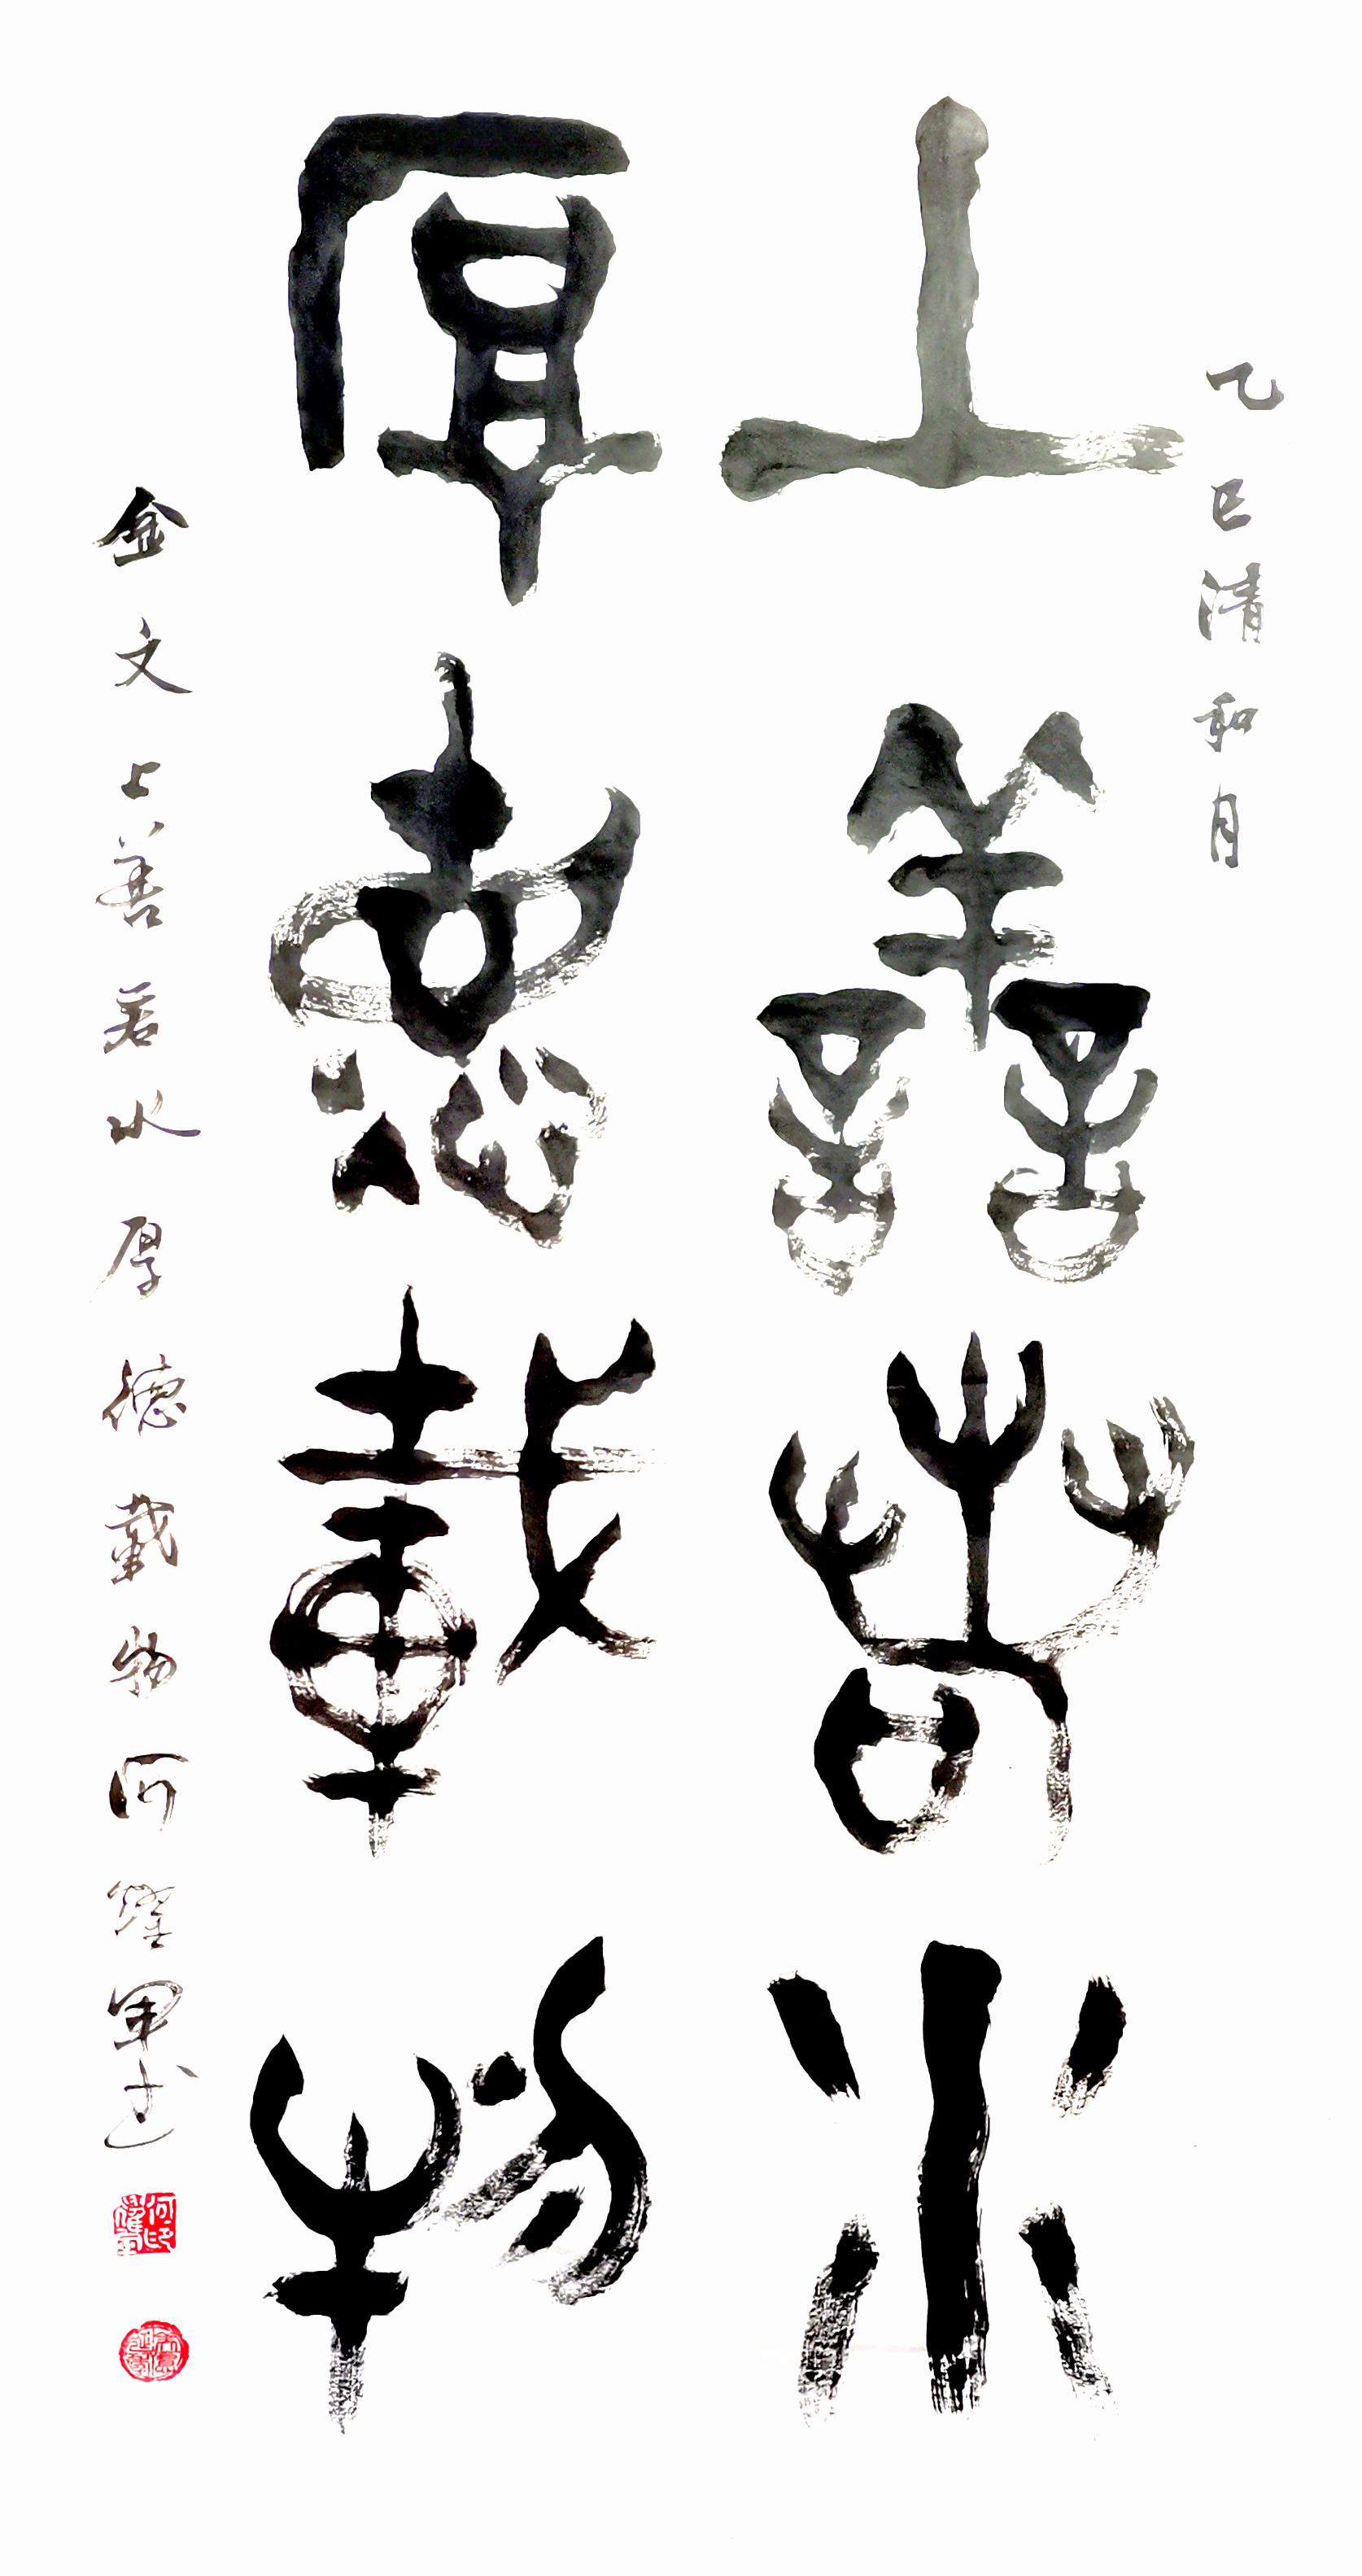 乙巳清和月
上善若水
厚德載物
金文上善若水厚德載物何耀軍書